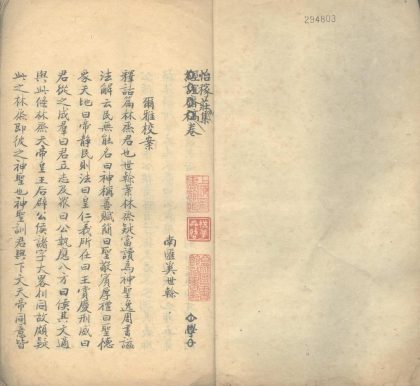 294803
莊集
卷
小學
爾雅校案
南匯奚世榦
釋詁篇林烝君也世榦案林烝疑當讀為神聖逸周書諡
法解云民無能名曰神稱善賦簡曰聖敬賓厚禮曰聖德
象天地曰帝靜民則法曰皇仁義所在曰王賞慶刑威曰
君從之成羣曰君立志及眾曰公執應八方曰侯其文通
與此條林烝天帝皇王后辟公侯諸字大畧相同故頗疑
此之林烝即彼之神聖也神聖訓君與下文天帝同意皆